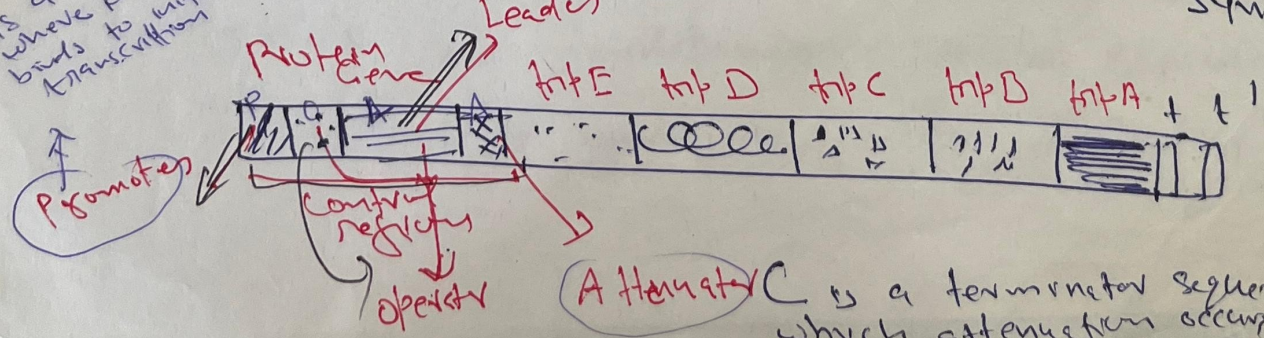 where
binds to
transcription
Leader
Protein
Gene
P O A
trpE trpD trpC trpB trpA t t'
Promoter
Control
regions
operatr
Attenuator C is a terminator seque
which attenuation occur